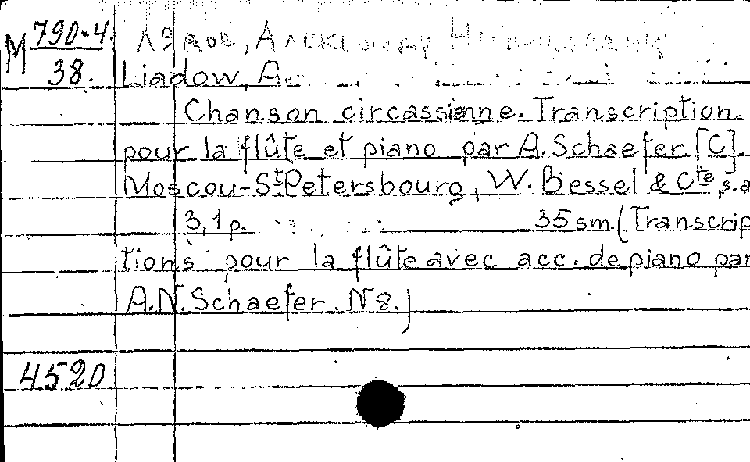 M 790-4.
38.
Лядов, Александр
Liadow, A.
Chanson circassienne. Transcription
pour la flûte et piano par A. Schaefer. [C].
Moscou-St Petersbourg, W. Bessel & Cte, s.a
3,1 p. 35 sm. (Transcrip
tions pour la flûte avec acc. de piano par
A.N. Schaefer. N 8.)
4520